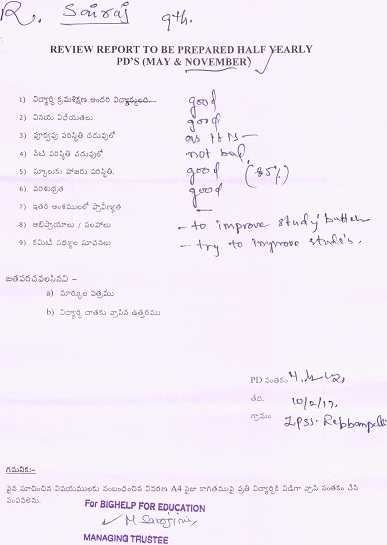 R. Sairaj 9th.
REVIEW REPORT TO BE PREPARED HALF YEARLY
PD'S (MAY & NOVEMBER)
1) విద్యార్థి క్రమశిక్షణ అందరి good
2) వినయ విధేయతలు good
3) పూర్వపు పరిస్థితి చదువులో as it is
4) నేటి పరిస్థితి చదువులో not bad
5) స్కూలుకు హాజరు పరిస్థితి. good (85%)
6) పరిశుభ్రత good
7) ఇతర అంశములలో ప్రావీణ్యత —
8) అభిప్రాయాలు / సలహాలు - to improve study better
9) కమిటీ సభ్యుల సూచనలు - try to improve studies.
జతపరచవలసినవి –
a) మార్కుల పత్రము
b) విద్యార్థి దాతకు వ్రాసిన ఉత్తరము
PD సంతకం
తేది. 10/2/17.
గ్రామం ZPSS-
గమనిక:-
పైన సూచించిన విషయములకు సంబంధించిన వివరణ A4 సైజు కాగితముపై ప్రతి విద్యార్థికి విడిగా వ్రాసి సంతకం చేసి
పంపవలెను.
For BIGHELP FOR EDUCATION
M Sarojini
MANAGING TRUSTEE